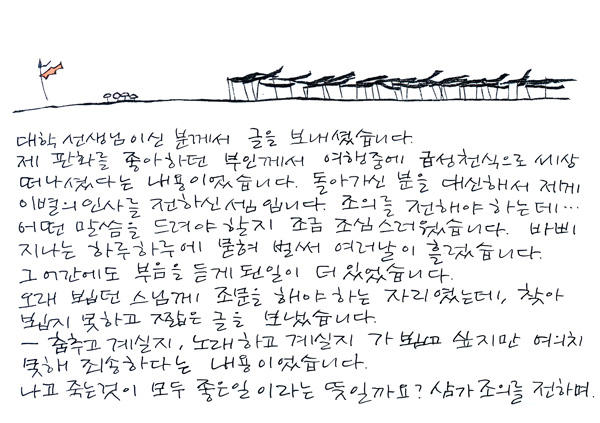 대학 선생님이신 분께서 글을 보내셨습니다.
제 판화를 좋아하던 부인께서 여행중에 급성천식으로 세상
떠나셨다는 내용이었습니다. 돌아가신 분을 대신해서 제게
이별의 인사를 전하신 셈입니다. 조의를 전해야 하는데…
어떤 말씀을 드려야 할지 조금 조심스러웠습니다. 바삐
지나는 하루하루에 묻혀 벌써 여러날이 흘렀습니다.
그 어간에도 부음을 듣게 된일이 더 있었습니다.
오래 뵙던 스님께 조문을 해야 하는 자리였는데, 찾아
뵙지 못하고 짧은 글을 보냈습니다.
– 춤추고 계실지, 노래하고 계실지 가 뵙고 싶지만 여의치
못해 죄송하다는 내용이었습니다.
나고 죽는것이 모두 좋은일 이라는 뜻일까요? 삼가 조의를 전하며.